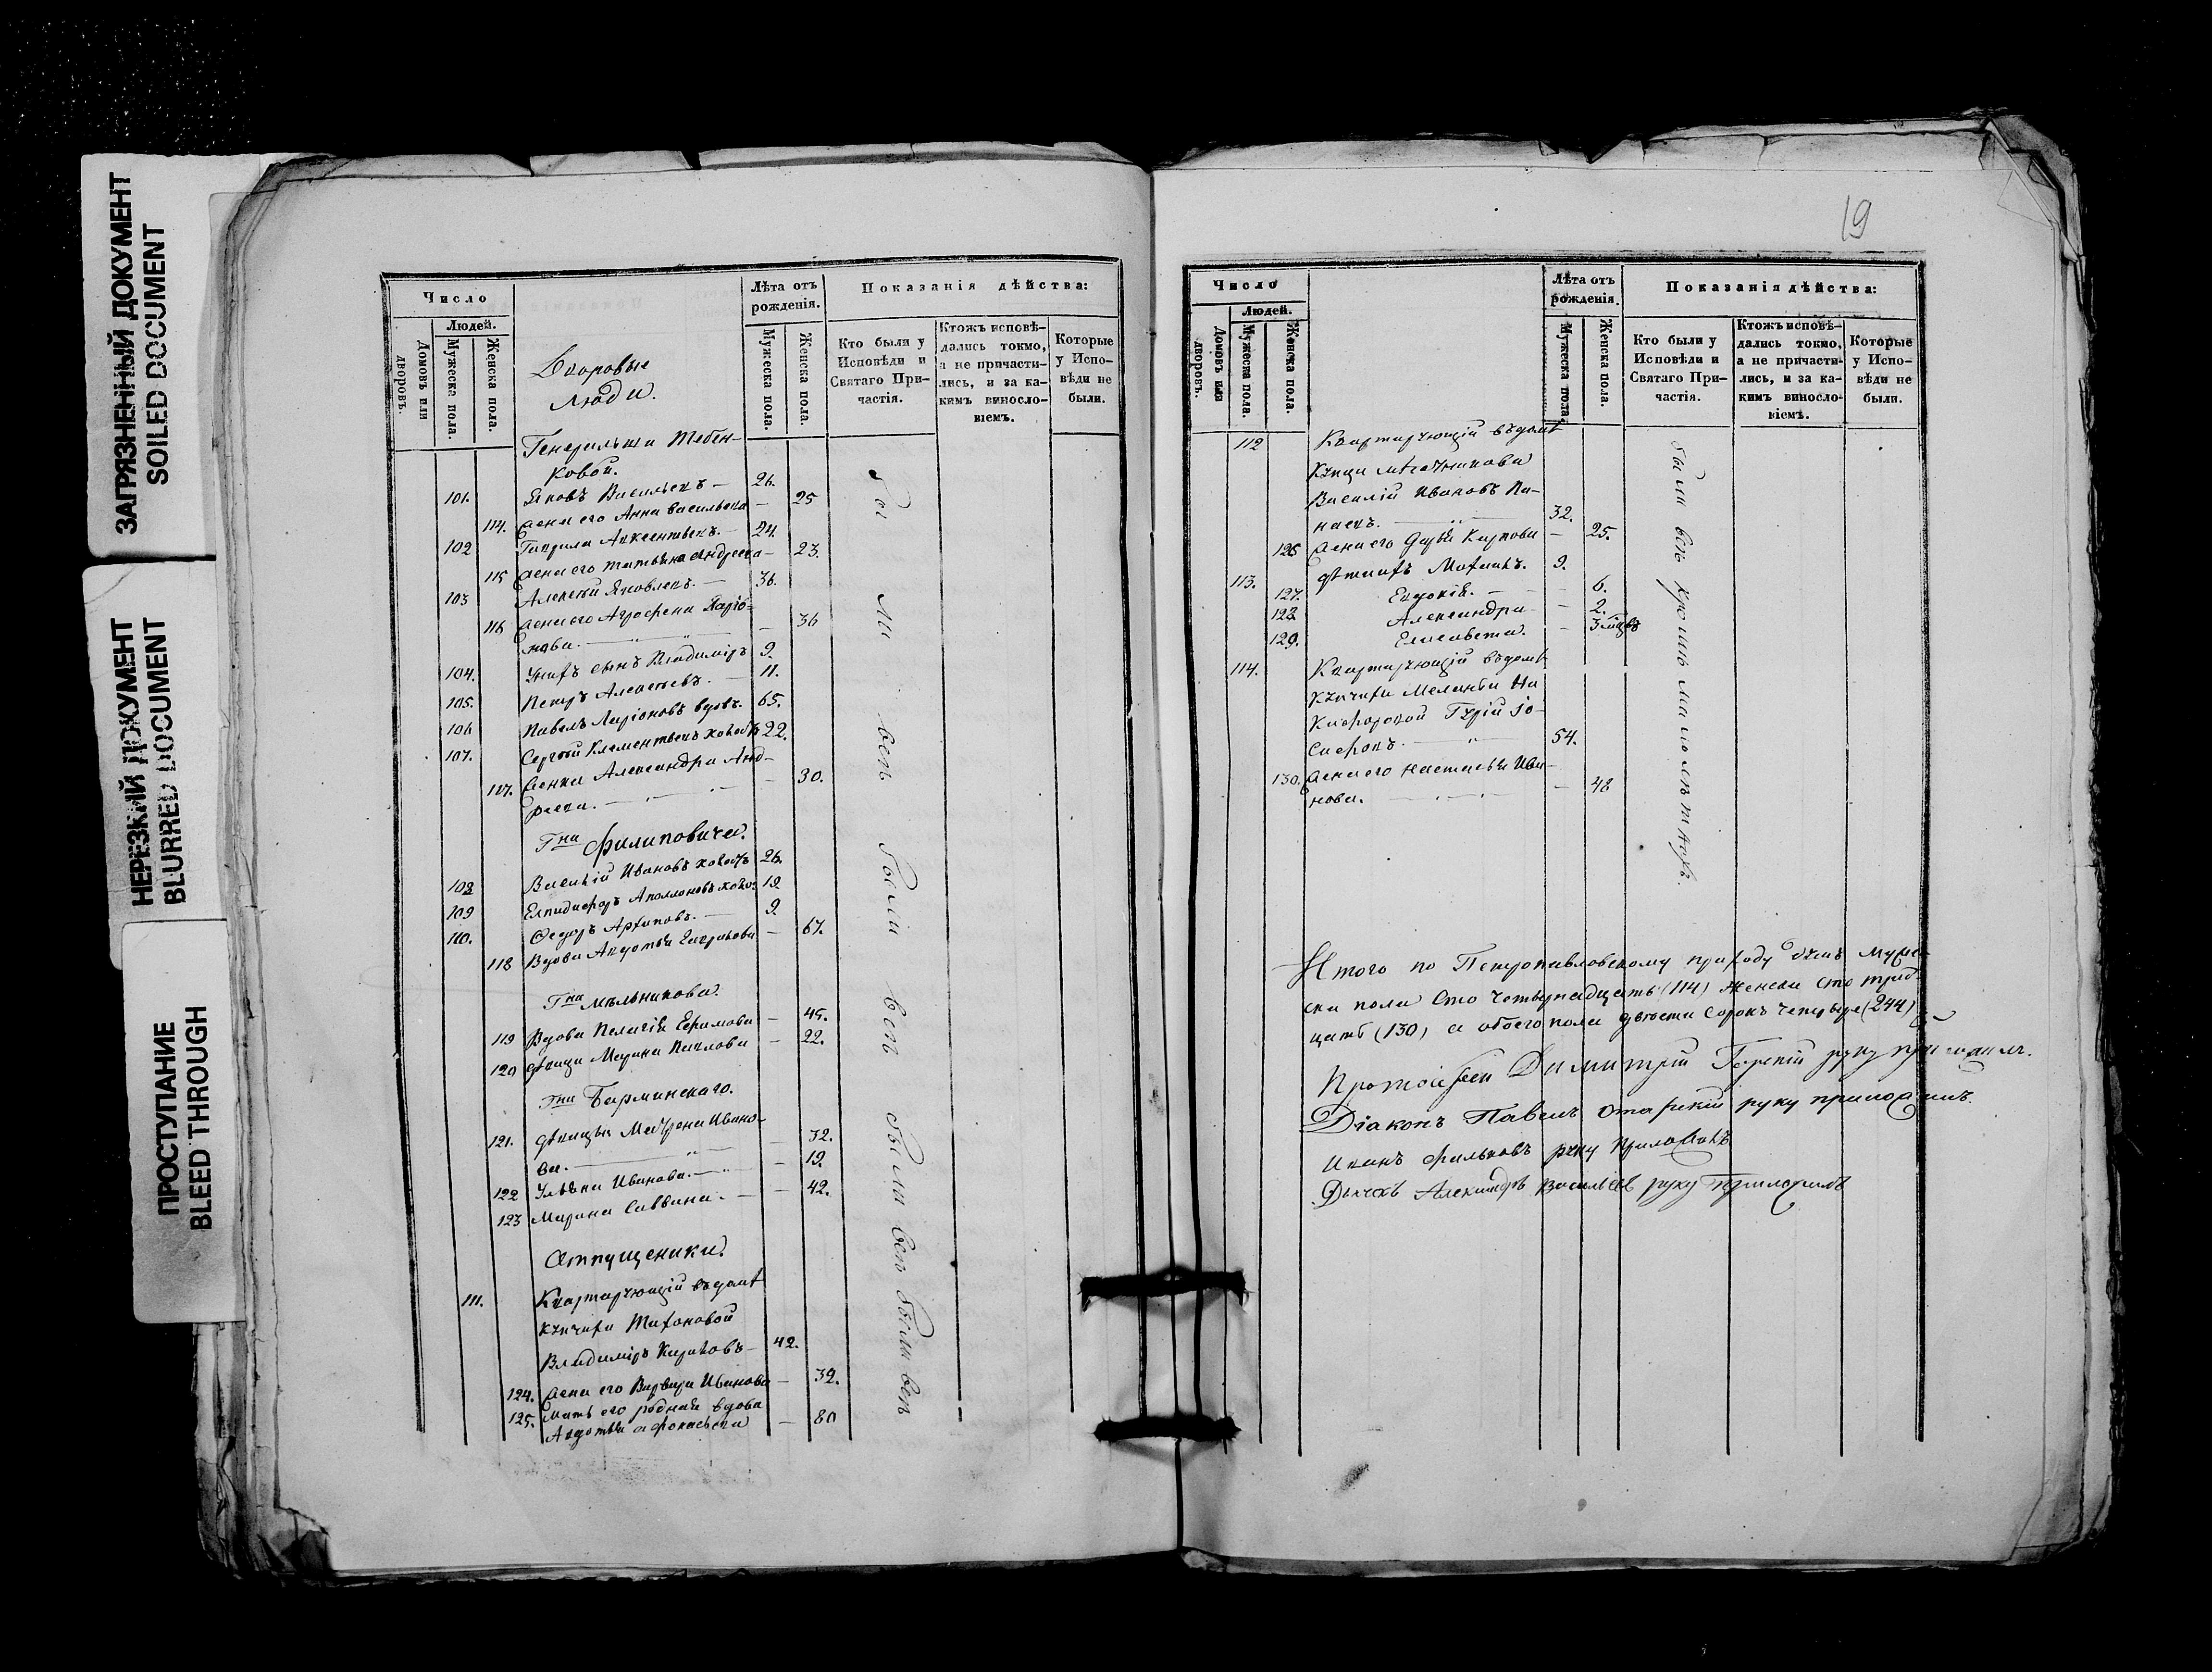 ЗАГРЯЗНЕННЫЙ ДОКУМЕНТ
SOILED DOCUMENT
НЕРЕЗКИЙ ДОКУМЕНТ
BLURRED DOCUMENT
ПРОСТУПАНИЕ
BLEED THROUGH
Число
Людей.
Домовъ или дворовъ.
Мужеска пола.
Женска пола.
Дворовые
люди.
Лѣта отъ рожденія.
Мужеска пола.
Женска пола.
Показанія дѣйства:
Кто были у Исповѣди и Святаго Причастія.
Ктожъ исповѣдались токмо, а не причастились, и за какимъ винословіемъ.
Которые у Исповѣди не были.
Генеральши Тебен-
ковой.
101. Яковъ Васильевъ — 26.
114. Жена его Анна Васильева — 25
102 Гаврила Авксентьевъ. — 24.
115 Жена его Татьяна Андреева — 23.
103 Алексѣй Яковлевъ. — 36.
116 Жена его Агрофена Ларіо-
нова. — 36
104. У нихъ сынъ Владиміръ 9.
105. Петръ Алексѣевъ. — 11.
106 Павелъ Ларіоновъ вдовъ. 65.
107. Сергѣй Клементьевъ холостъ 22.
117. Женка Александра Анд-
реева. — 30.
Гна Филиповича.
108 Василій Ивановъ холостъ 26.
109 Елпидифоръ Аполлоновъ холос 19
110. Ѳедоръ Архиповъ. — 9
118 Вдова Авдотья — 67.
Гна Мельникова.
119 Вдова Пелагія Ефимова — 45.
120 Дѣвица Марина Павлова — 22.
Гна Барминскаго.
121. Дѣвицы Матрена Ивано-
ва. — 32.
122 Ульяна Иванова. — 19.
123 Марина Саввина. — 42.
Отпущеники.
111. Квартирующій въ домѣ
купчихи Тихоновой
Владиміръ Кириловъ — 42.
124. Жена его Варвара Иванова — 39.
125. Мать его родная вдова
Авдотья Афонасьева — 80
были всѣ были всѣ были всѣ были всѣ
19
Число
Людей.
Домовъ или дворовъ.
Мужеска пола.
Женска пола.
Лѣта отъ рожденія.
Мужеска пола.
Женска пола.
Показанія дѣйства:
Кто были у Исповѣди и Святаго Причастія.
Ктожъ исповѣдались токмо, а не причастились, и за какимъ винословіемъ.
Которые у Исповѣди не были.
112 Квартирующій въ домѣ
Купца
Василій Ивановъ Па-
32.
126 Жена его Дарья Карпова — 25.
113. Дѣти ихъ Михаилъ. 9.
127. Евдокія. — 6.
128 Александра — 2.
129. Елисавета. — 3 мѣсца
114. Квартирующій въ домѣ
Купчихи Меланьи Ни
кифоровой Гурій Іо-
сифовъ. — 54.
130. Жена его Настасья Ива-
нова. — 48
были всѣ кромѣ малолѣтнихъ.
Итого по Петропавловскому приходу душъ муже-
ска пола Сто четырнадцать (114) женска сто трид-
цать (130) а обоего пола двѣсти сорокъ четыре (244)
Протоіерей Димитрій Горскій руку приложилъ.
Діаконъ Павелъ руку приложилъ.
Иванъ Фильковъ руку приложилъ
Дьячекъ Александръ Васильевъ руку приложилъ